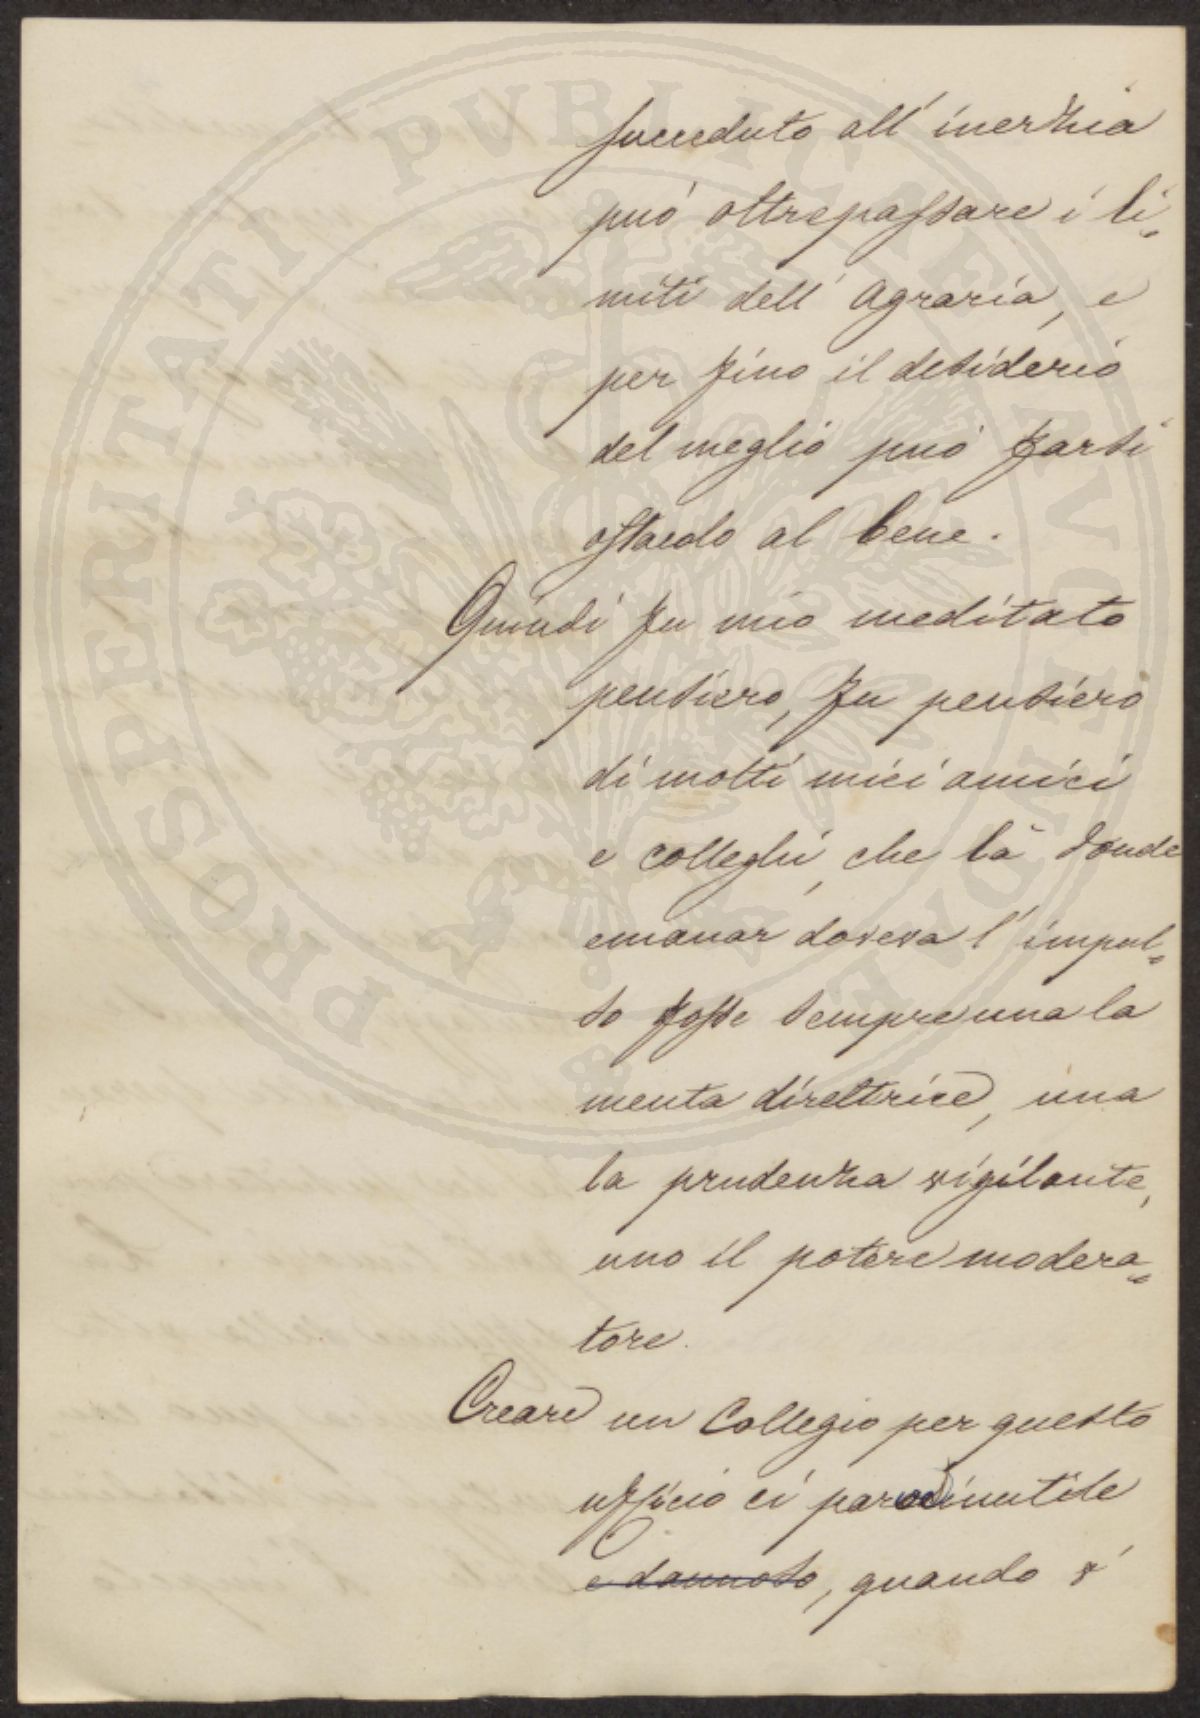 succeduto all' inerzia
può oltrepassare i li=
miti dell' Agraria, e
per fino il desiderio
del meglio può farsi
ostacolo al bene.
Quindi fu mio meditato
pensiero, fu pensiero
di molti miei amici
e colleghi, che là donde
emanar doveva l' impul=
so fosse sempre una la
menta direttrice, una
la prudenza vigilante,
uno il potere modera=
tore.
Creare un Collegio per questo
ufficio ci parve inutile
e dannoso, quando v'
PROSPERITATI PVBLICAE AVGENDAE